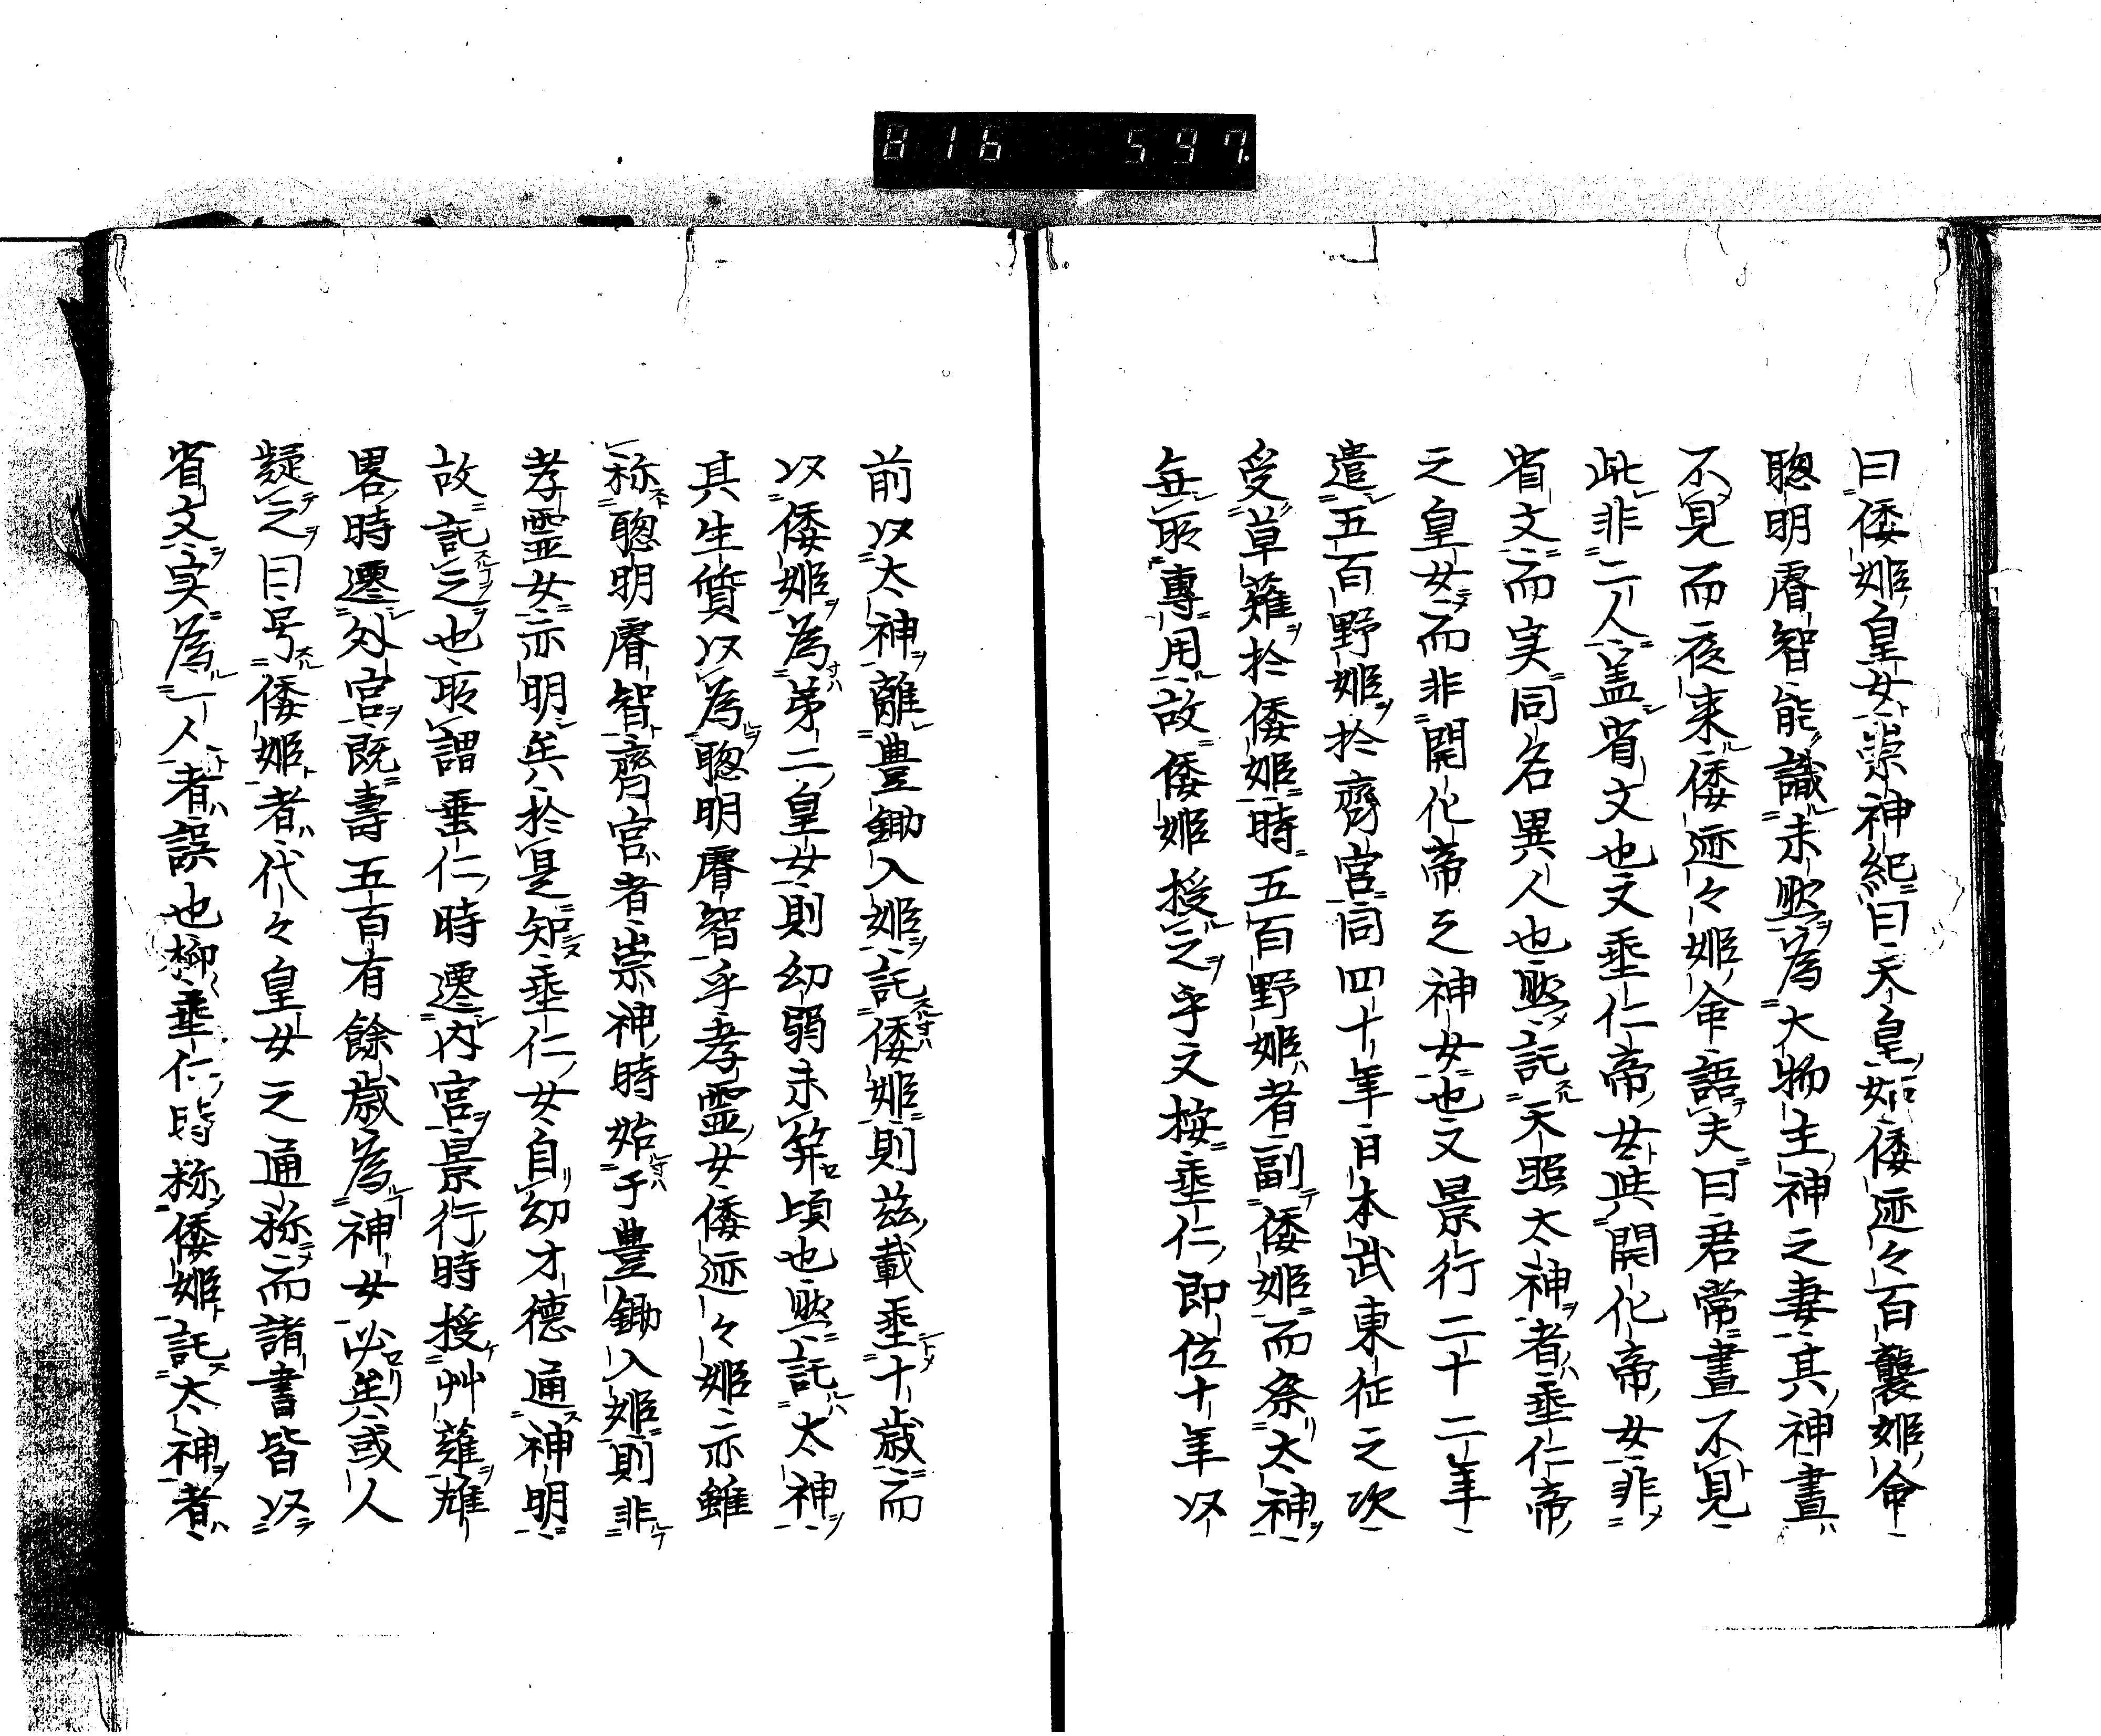 816 597
曰倭姫皇女崇神紀曰天皇姑倭迹々百襲姫命
聰明睿智能識未然為大物主神之妻其神晝
不見而夜来倭迹々姫命語夫曰君常晝不見
此非二人盖省文也又垂仁帝女與開化帝女非
省文而実同名異人也然託天照太神者垂仁帝
之皇女而非開化帝之神女也又景行二十二年
遣五百野姫於齊宮同四十年日本武東征之次
受草薙於倭姫時五百野姫者副倭姫而祭太神
無所専用故倭姫授之乎又按垂仁即位十年以
前以太神離豊鋤入姫託倭姫則茲載垂十歳而
以倭姫為第二皇女則幼弱未笄頃也然託太神
其生質以為聰明睿智乎孝霊女倭迹々姫亦雖
称聰明睿智齊宮者崇神時始于豊鋤入姫則非
孝霊女亦明矣於是知垂仁女自幼才徳通神明
故託之也所謂垂仁時遷内宮景行時授艸薙雄
畧時遷外宮既壽五百有餘歳為神女必矣或人
疑之曰号倭姫者代々皇女之通称而諸書皆以
省文実為一人者誤也抑垂仁時称倭姫託太神者